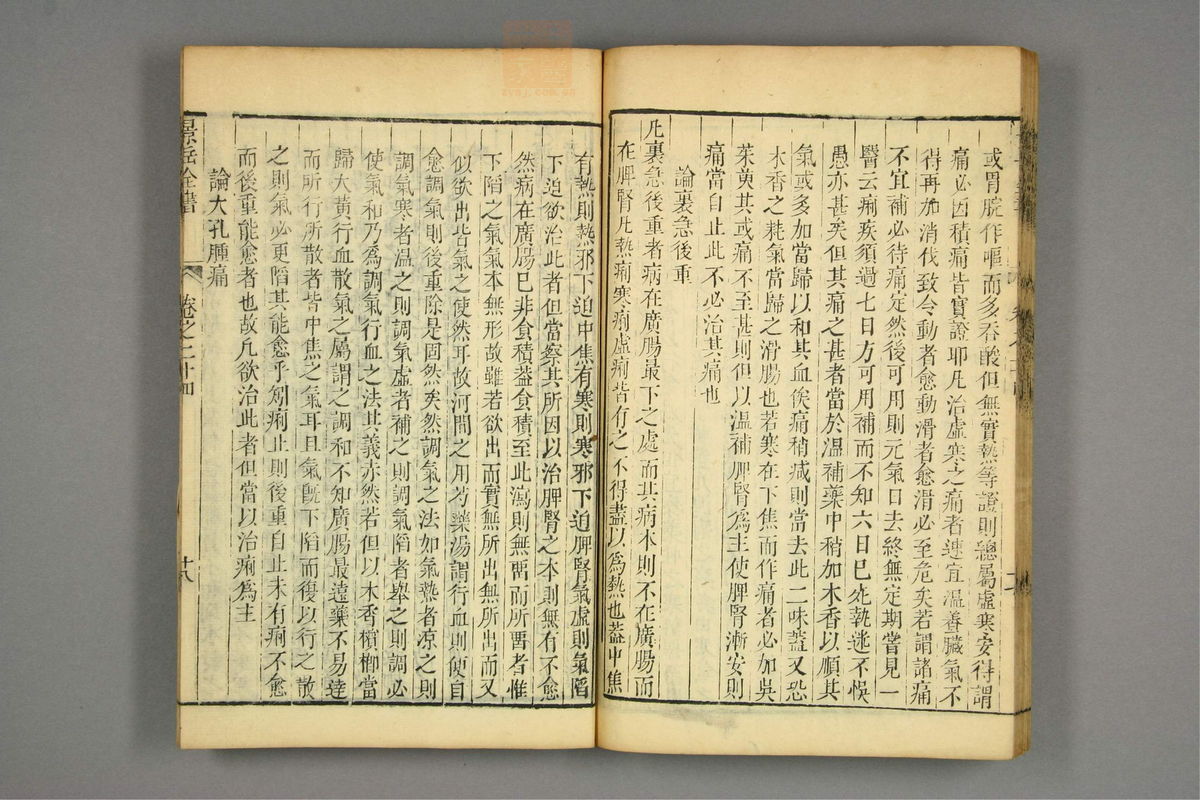 或胃脘作嘔而多吞酸但無實熱等證則總屬虛寒安得謂
痛必因積痛皆實證耶凡治虛寒之痛者速宜溫養臟氣不
得再加消伐致令動者愈動滑者愈滑必至危矣若謂諸痛
不宜補必待痛定然後可用則元氣日去終無定期嘗見一
醫云痢疾須過七日方可用補而不知六日已死執迷不悞
愚亦甚矣但其痛之甚者當於溫補藥中稍加木香以順其
氣或多加當歸以和其血俟痛稍減則當去此二味蓋又恐
木香之耗氣當歸之滑腸也若寒在下焦而作痛者必加吳
茱萸其或痛不至甚則但以溫補脾腎爲主使脾腎漸安則
痛當自止此不必治其痛也
論裏急後重
凡裏急後重者病在廣腸最下之處而其病本則不在廣腸而
在脾腎凡熱痢寒痢虛痢皆有之不得盡以爲熱也蓋中焦
有熱則熱邪下迫中焦有寒則寒邪下迫脾腎氣虛則氣陷
下迫欲治此者但當察其所因以治脾腎之本則無有不愈
然病在廣腸已非食積蓋食積至此瀉則無畱而所畱者惟
下陷之氣氣本無形故雖若欲出而實無所出無所出而又
似欲出皆氣之使然耳故河間之用芍藥湯謂行血則便自
愈調氣則後重除是固然矣然調氣之法如氣熱者凉之則
調氣寒者溫之則調氣虛者補之則調氣陷者舉之則調必
使氣和乃爲調氣行血之法其義亦然若但以木香檳榔當
歸大黃行血散氣之屬謂之調和不知廣腸最遠藥不易達
而所行所散者皆中焦之氣耳且氣旣下陷而復以行之散
之則氣必更陷其能愈乎矧痢止則後重自止未有痢不愈
而後重能愈者也故凡欲治此者但當以治痢爲主
論大孔腫痛
景岳全書
卷之二十四
十八